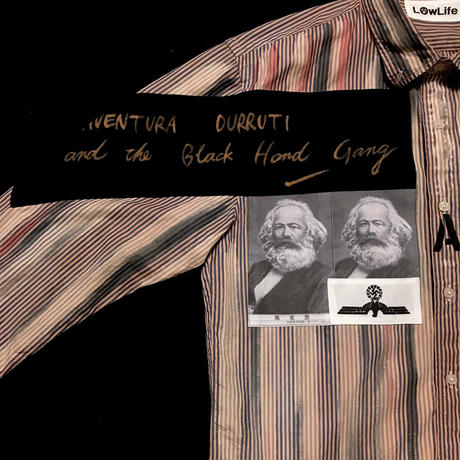 LOwLife
.VENTURA DURRUTI
and the Black Hand Gang
馬克思